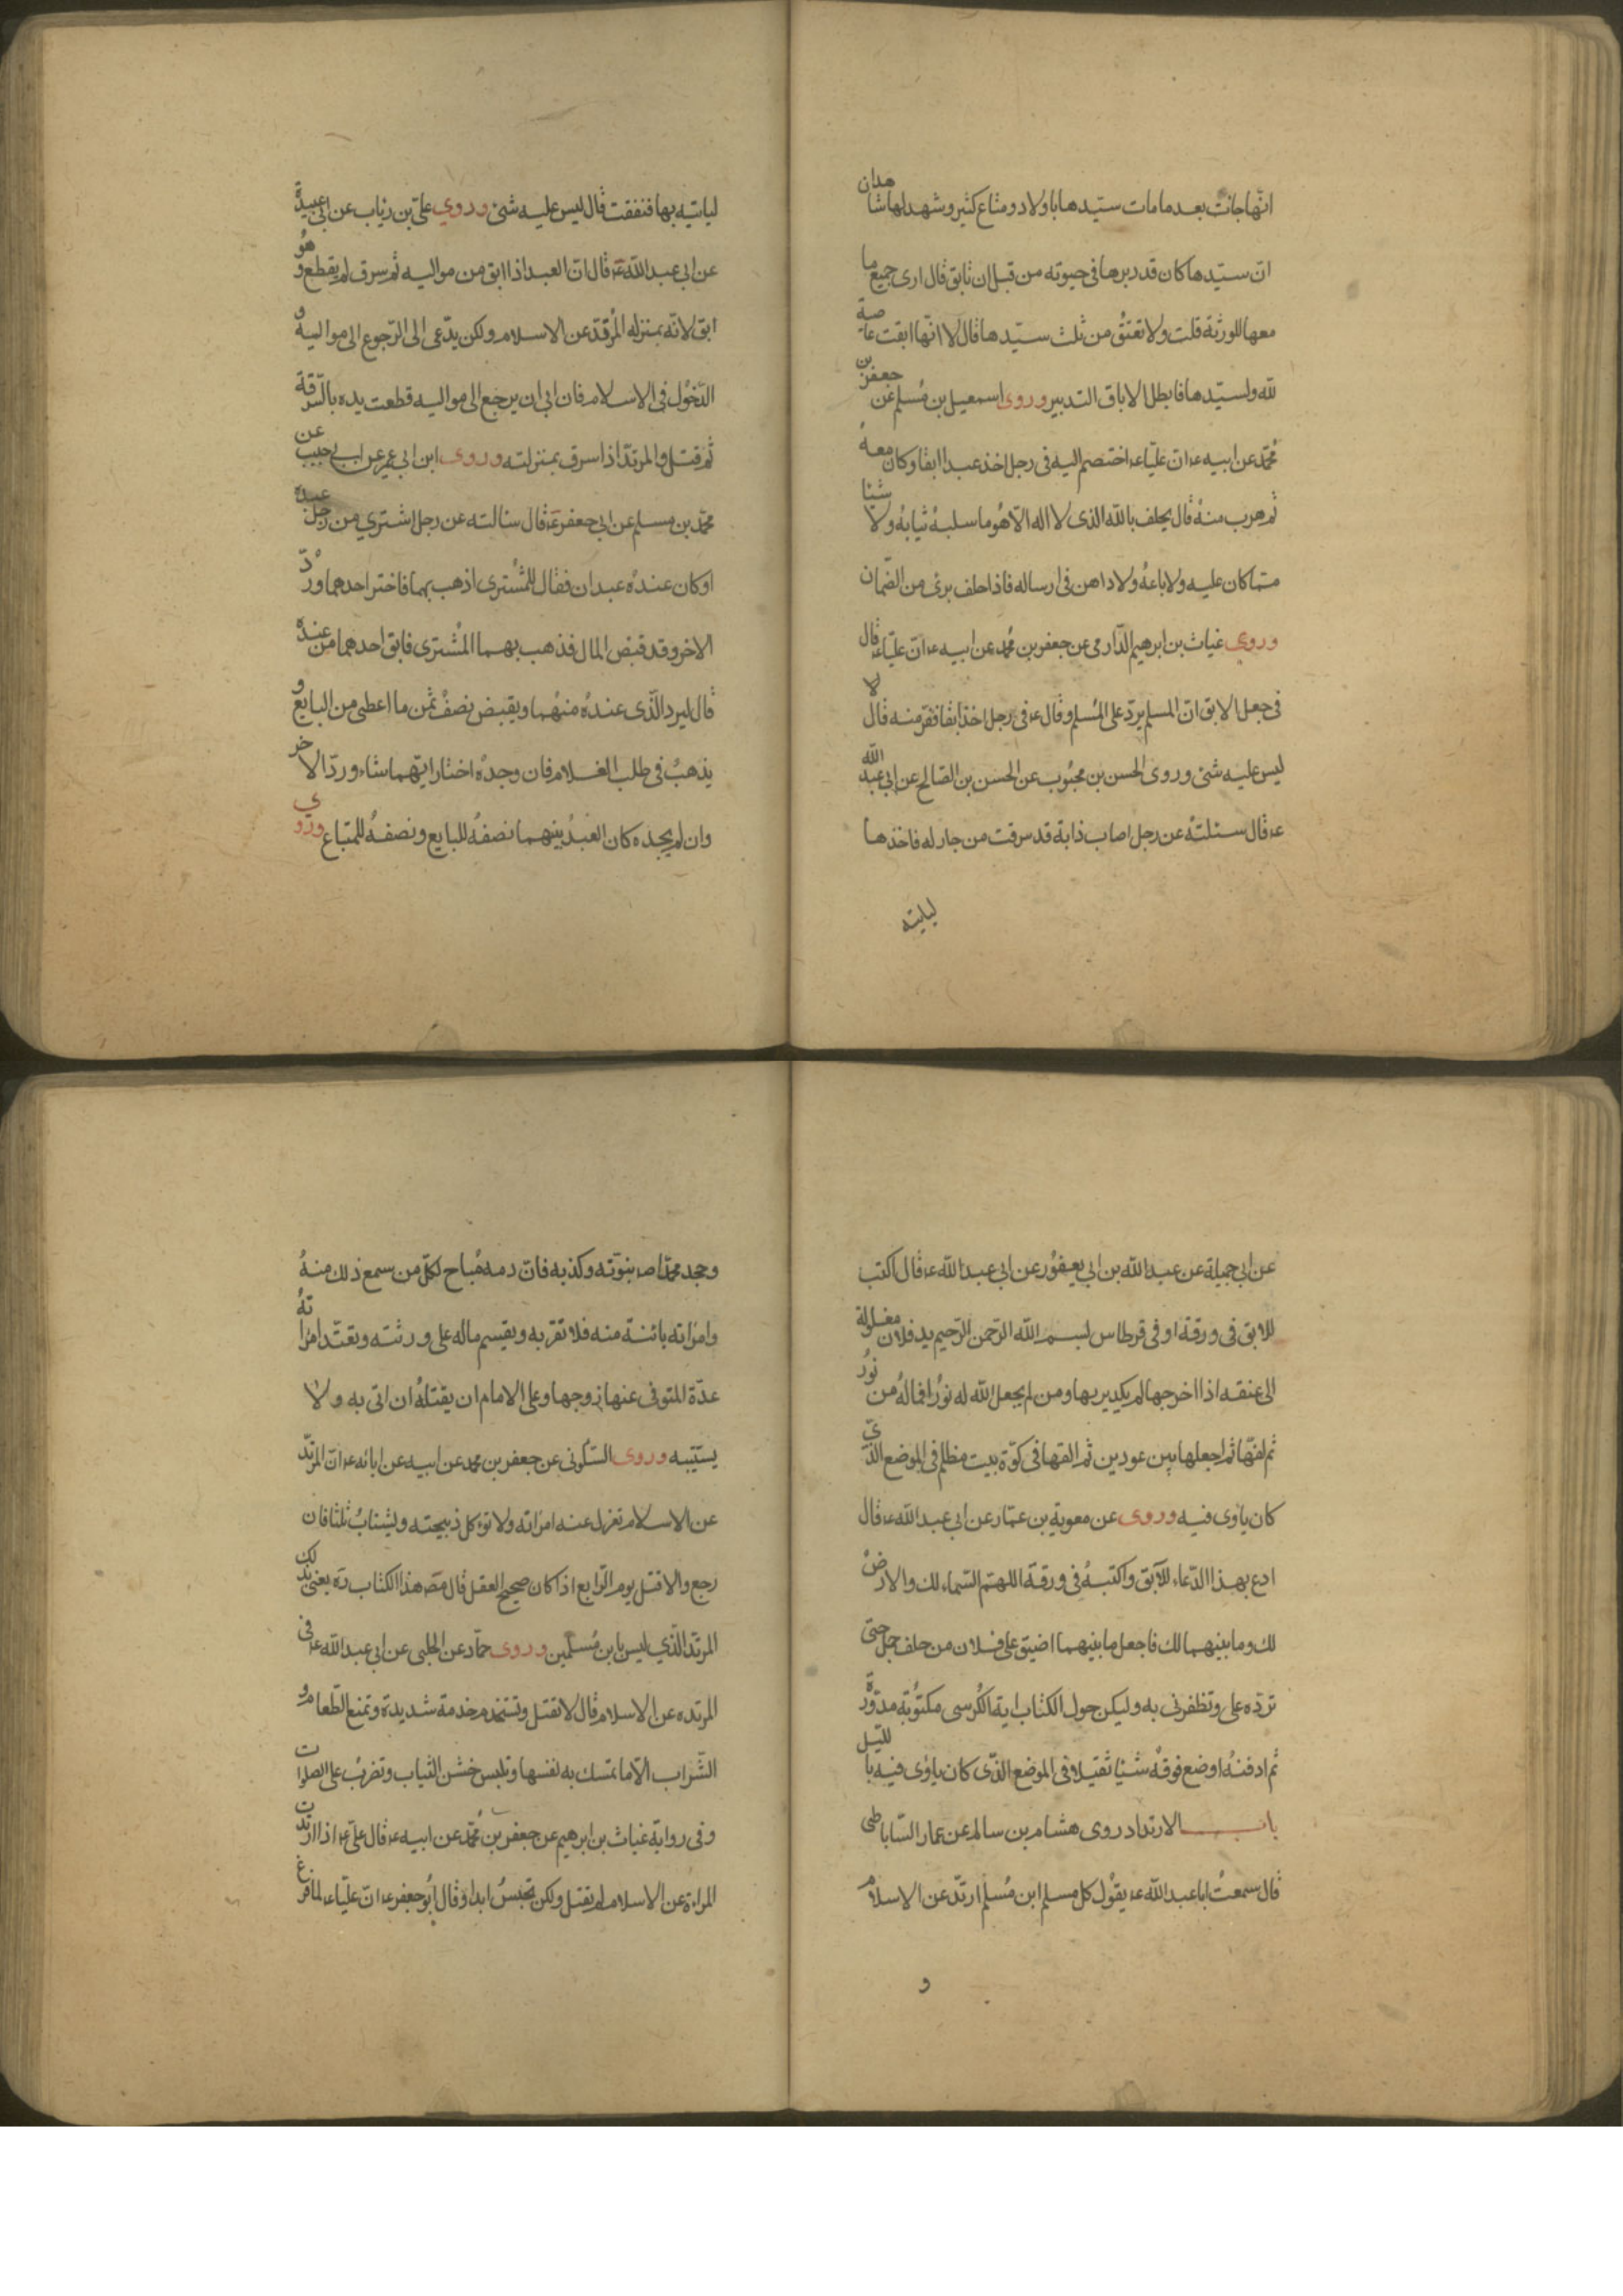 انّها جائت بعد ما مات سيّدها باولاد و متاع كثير و شهد لها شاهدان
انّ سيّدها كان قد دبرها فى حيوته من قبل ان تابق قال ارى جميع ما
معها للورثة قلت ولا تعتق من ثلث سيّدها قال لا انّها ابقت عاصية
لله ولسيّدها فابطل الاباق التدبير و روى اسمعيل بن مُسلم عن جعفر بن
مُحمّد عن ابيه عه انّ عليّا عه اختصم اليه فى رجل اخذ عبدا ابقا وكان معهُ
ثم هرب منهُ قال يحلف بالله الذى لا اله الّا هُو ما سلبهُ ثيابهُ ولا شيئا
ممّا كان عليه ولا باعهُ ولا داهن فى ارساله فاذا حلف برئ من الضّمان
وروى غياث بن ابرهيم الدّارمى عن جعفر بن مُحمد عن ابيه عه انّ عليّا عه قال
فى جعل الابق انّ المسلم يردّ على المُسلم وقال عه فى رجل اخذ ابقا ففرّ منه قال لا
ليس عليه شئ وروى الحسن بن محبُوب عن الحسن بن الصّالح عن ابى عبد الله
عه قال سئلتهُ عن رجل اصاب دابة قد سرقت من جار له فاخذها
لياتيه
لياتيه بها فنفقت قال ليس عليه شئ وروى علىّ بن رئاب عن ابى عبيدة
عن ابى عبد الله عه قال انّ العبد اذا ابق من مواليه ثم سرق لم يقطع وهُو
ابق لانّه بمنزله المُرتدّ عن الاسلام ولكن يدّعى الى الرّجوع الى مواليه و
الدّخُول فى الاسلام فان ابى ان يرجع الى مواليه قطعت يده بالسّرقة
ثم قتل والمرتدّ اذا سرق بمنزلته وروى ابن ابى عمير عن ابى حبيب عن
محمّد بن مسلم عن ابى جعفر عه قال سئالته عن رجل اشترى من رجل عبدة
او كان عندهُ عبدان فقال للمُشترى اذهب بهما فاختر احدهما ورُدّ
الاخر وقد قبض المال فذهب بهما المُشترى فابق احدهما من عنده
قال ليرد الّذى عندهُ منهُما ويقبض نصفُ ثمن ما اعطى من البايع و
يذهبُ فى طلب الغلام فان وجدهُ اختار ايّهما شاء وردّ الاخر
وان لم يجده كان العبدُ بينهما نصفهُ للبايع ونصفهُ للمتباع وروى
عن ابى جميلة عن عبد الله بن ابى يعفُور عن ابى عبد الله عه قال اكتب
للابق فى ورقة او فى قرطاس بسم الله الرّحمن الرّحيم يد فلان مغلولة
الى عنقه اذا اخرجها لم يكد يريها ومن لم يجعل الله له نورُا فما لهُ من نُور
ثم لفّها ثم اجعلها بين عودين ثم القها فى كوّة بيت مظلم فى الموضع الذّى
كان ياوى فيه وروى عن معوية بن عمّار عن ابى عبد الله عه قال
ادع بهذا الدّعاء للآبق واكتبهُ فى ورقة اللهمّ السّماء لك والارضُ
لك وما بينهما لك فاجعل ما بينهما اضيق على فلان من جلد جمل حتى
تردّه على وتظفرنى به وليكن حول الكتاب اية الكُرسى مكتُوبة مدوّرة
ثم ادفنهُ او ضع فوقهُ شيئا ثقيلا فى الموضع الذّى كان ياوى فيه باللّيل
باب الارتداد روى هشام بن سالم عن عمار السّاباطى
قال سمعتُ ابا عبد الله عه يقوُل كل مسلم ابن مُسلم ارتدّ عن الاسلام
و
وجحد محمّدا صه نبوّته وكذبه فانّ دمه مُباح لكلّ من سمع ذلك منهُ
وامرٔاته بائنة منه فلا تقربه ويقسم ماله على ورثته وتعتدّ امرٔاتهُ
عدّة المتوفى عنها زوجها وعلى الامام ان يقتلهُ ان اتى به ولا
يستّيبه وروى السّكونى عن جعفر بن محمد عن ابيه عن ابائه عه انّ المرتدّ
عن الاسلام تعزل عنه امراته ولا تؤكل ذبيحته ويُستتابُ ثلثا فان
رجع والا قتل يوم الرّابع اذا كان صحيح العقل قال مصّ هذا الكتاب ره يعنى بذلك
المرتدّ الّذى ليس بابن مُسلمين وروى حمّاد عن الحلبى عن ابى عبد الله عه فى
المرتدة عن الاسلام قال لا تقتل وتستخدم خدمة شديدة وتمنع الطّعام و
الشّراب الّا ما تمسك به نفسها وتلبس خشن الثياب وتضربُ على الصلوات
وفى رواية غياث بن ابرهيم عن جعفر بن مُحمّد عن ابيه عه قال علىّ عه اذا ارتدّت
المراءة عن الاسلام لم تقتل ولكن تحبسُ ابدا وقال ابُو جعفر عه انّ عليّا عه لما فرغ